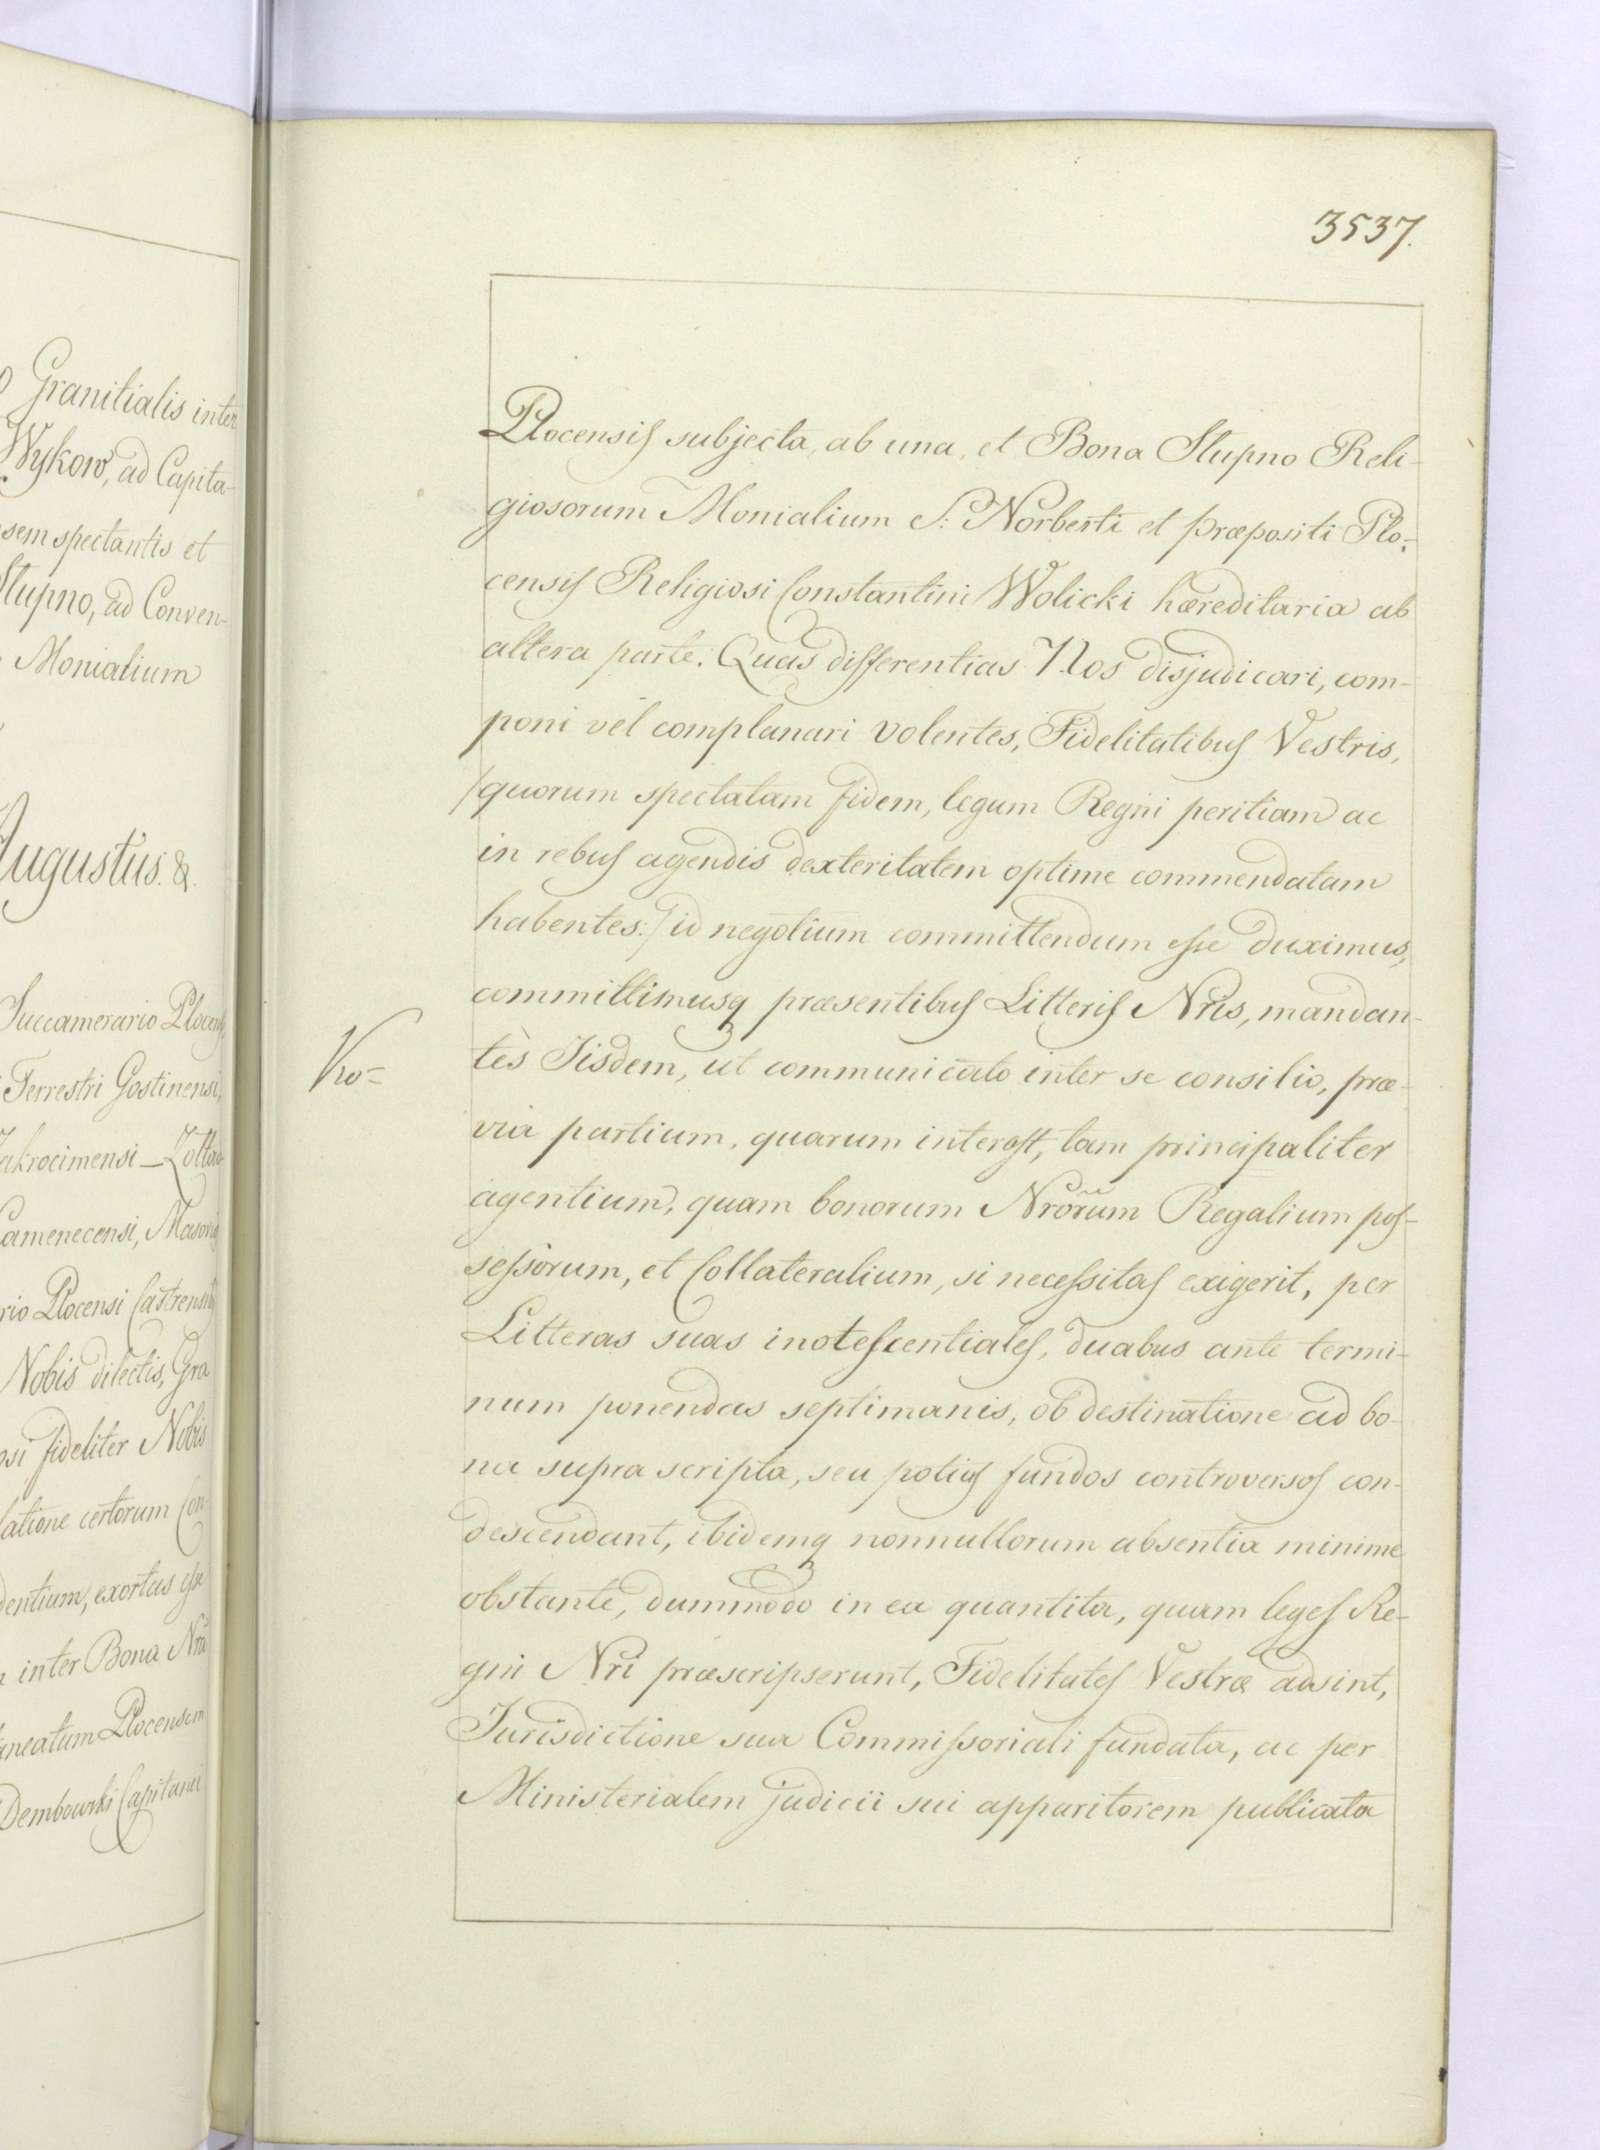 o Granitialis inter
Wykow, ad Capita-
sem spectantis et
Slupno, ad Conven-
Monialium
Augustus. &.
Succamerario Plocensi
Terrestri Gostinensi,
akrocimensi _
Camenecensi, Masovi
rio Plocensi Castrensib
Nobis dilectis, Gra
osi fideliter Nobis
latione certorum Con
dentium, exortas esse
inter Bona Nra
aneatum Plocensem
Dembowski Capitanei
3537.
Plocensis subjecta, ab una, et Bona Slupno Reli-
giosorum Monialium S: Norberti et præpositi Plo-
censis Religiosi Constantini Wolicki hæreditaria ab
altera parte. Quas differentias Nos disjudicari, com-
poni vel complanari volentes, Fidelitatibus Vestris,
/quorum spectatam fidem, legum Regni peritiam ac
in rebus agendis dexteritatem optime commendatam
habentes:/ id negotium committendum esse duximus,
committimusq præsentibus Litteris Nris, mandan-
tes Iisdem, ut communicato inter se consilio, præ-
Vro=
via partium, quarum interest, tam principaliter
agentium, quam bonorum Nrorum Regalium pos-
sessorum, et Collateralium, si necessitas exigerit, per
Litteras suas inotescentiales, duabus ante termi-
num ponendas septimanis, ob destinatione ad bo-
na supra scripta, seu potius fundos controversos con-
descendant, ibidemq nonnullorum absentia minime
obstante, dummodo in ea quantita, quam leges Re-
gni Nri præscripserunt, Fidelitates Vestræ adsint,
Jurisdictione sua Commissoriali fundata, ac per
Ministerialem judicii sui apparitorem publicata